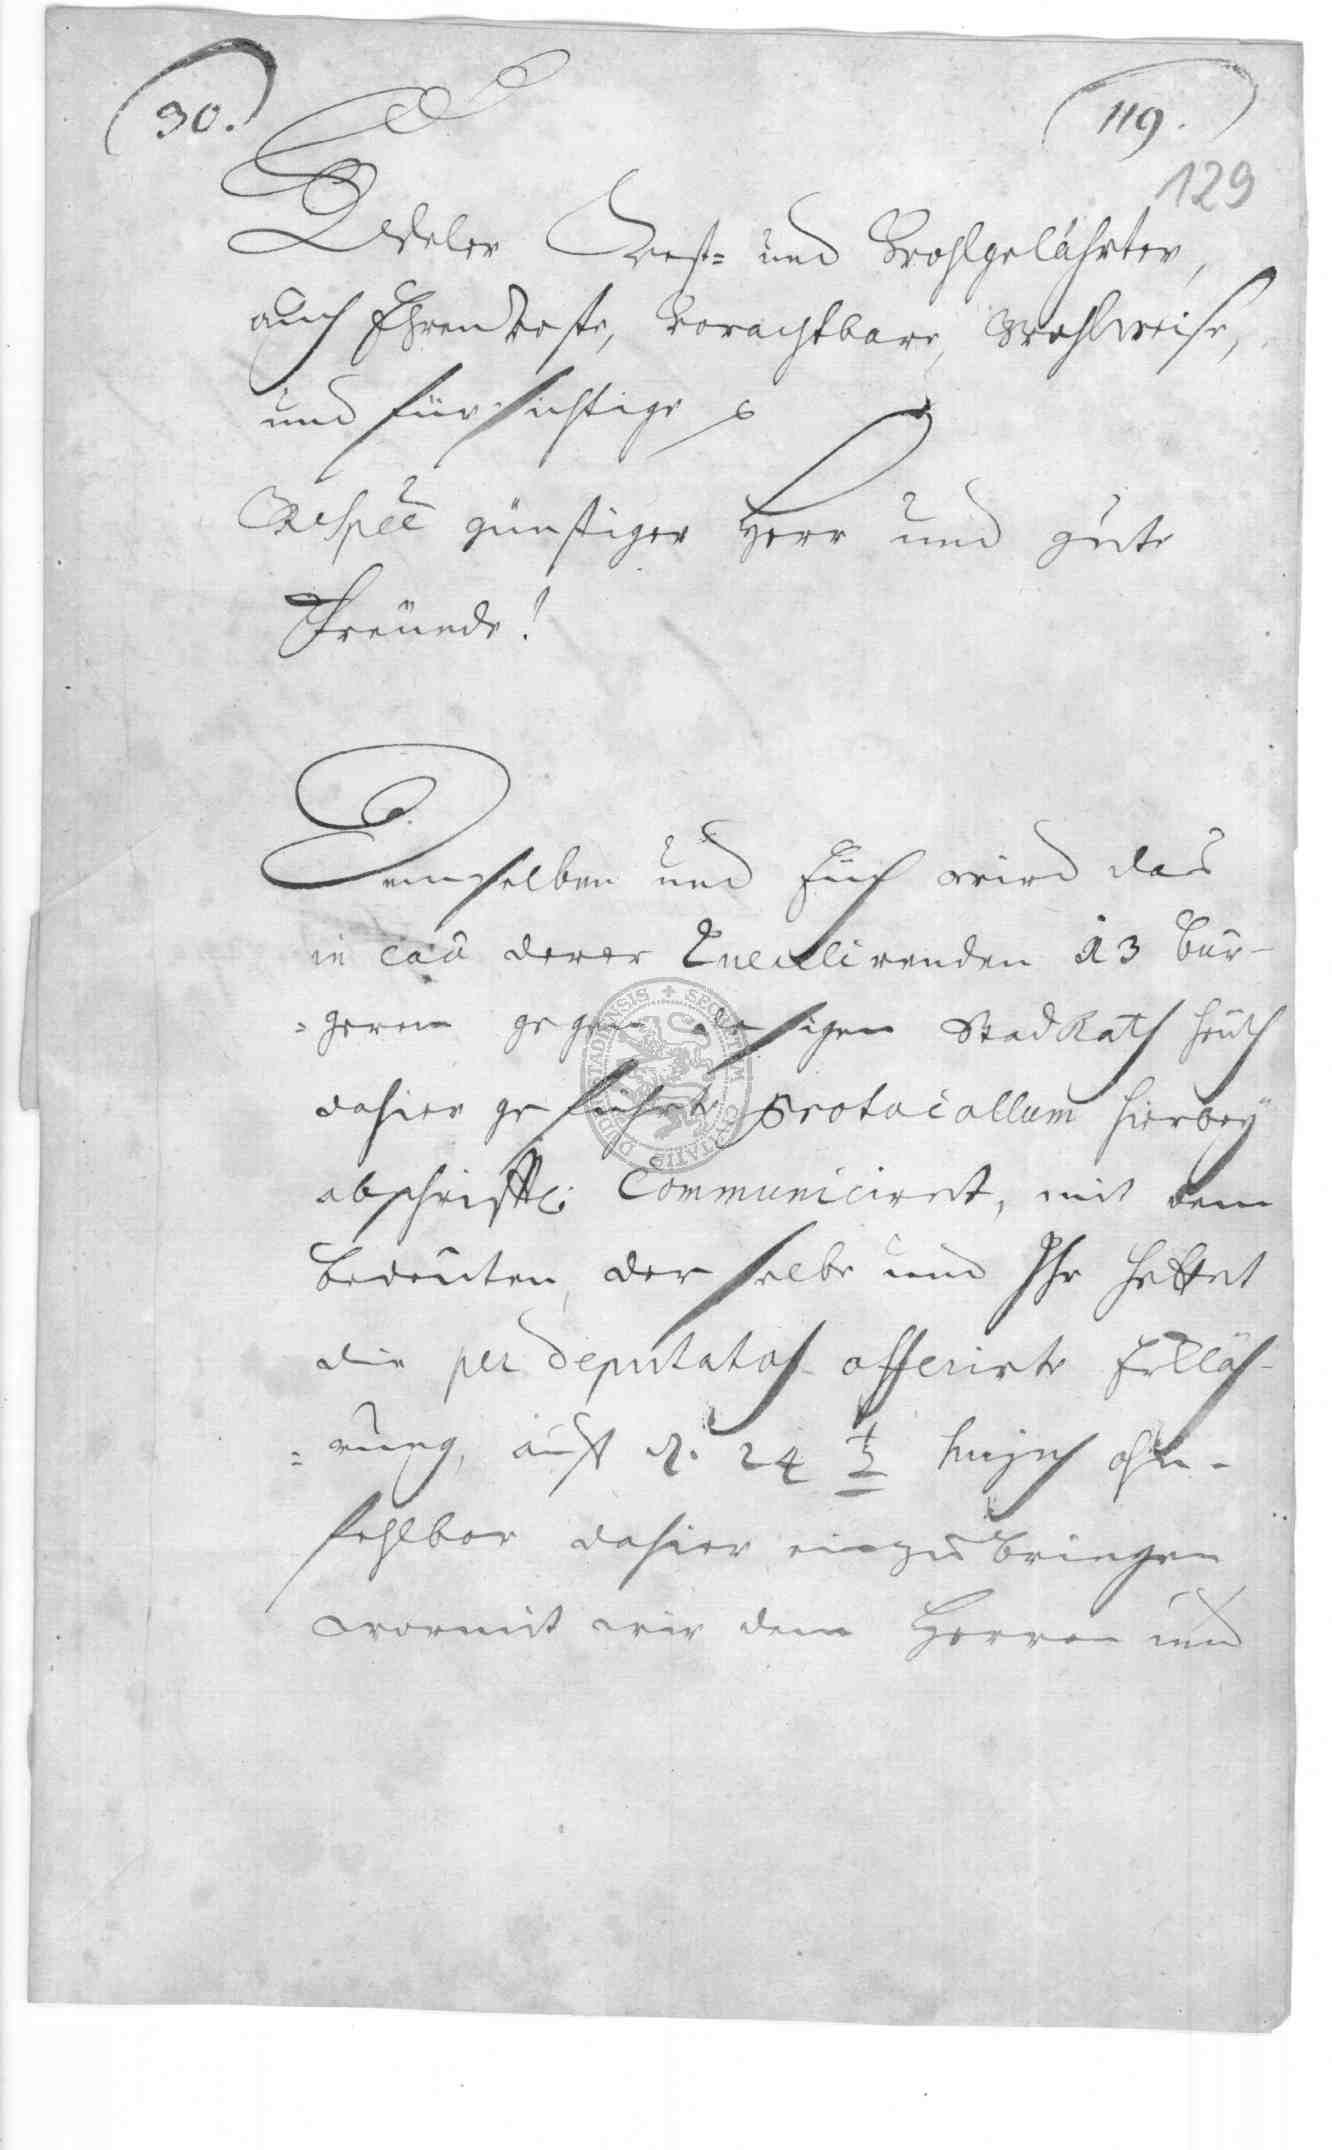 30.
119.
129
Edeler Vest- und Wohlgelährter,
auch Ehrenveste, Vorachtbare, Wohlweise,
und fürsichtige
Respẽe günstiger Herr und gute
Freunde!
Demselben und Euch wird das
in caũ derer Queulirenden 23 bür-
=gerem gegen dasigen StadRath heüth
dahier geführte Protocollum hierbey
abschrifftl. Communiciret, mit dem
bedeuten, derselbe und Ihr hettet
die per deputatos offerirte Erkläh-
=rung, auff d. 24t hujus ohn-
fehlbar dahier einzubringen
wormit wir dem Herren und
SECRETUM CIVITATIS DUDERSTADIENSIS